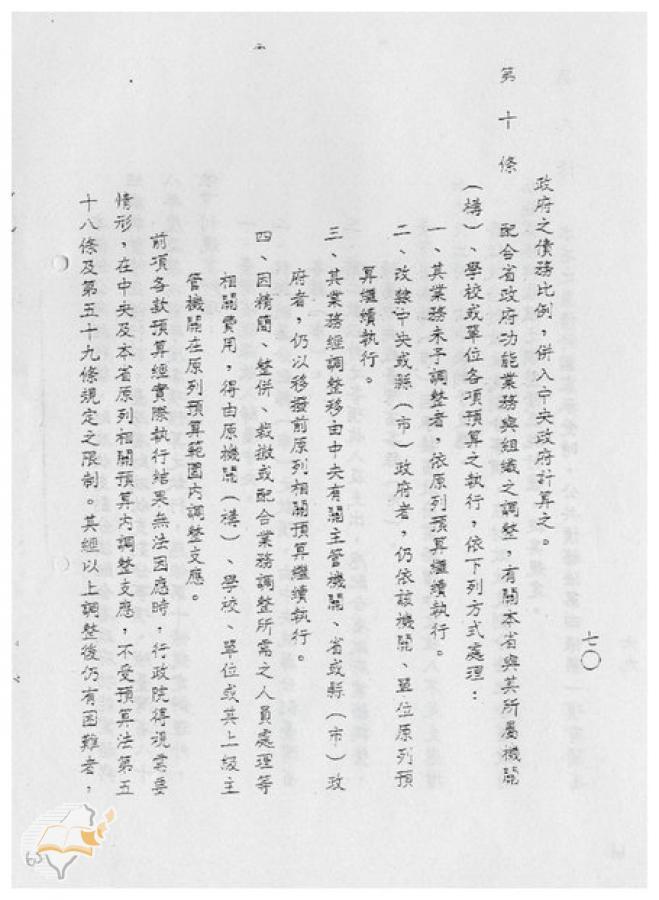 七〇
政府之債務比例，併入中央政府計算之。
第十條　配合省政府功能業務與組織之調整，有關本省與其所屬機關
（構）、學校或單位各項預算之執行，依下列方式處理：
一、其業務未予調整者，依原列預算繼續執行。
二、改隸中央或縣（市）政府者，仍依該機關、單位原列預
算繼續執行。
三、其業務經調整移由中央有關主管機關、省或縣（市）政
府者，仍以移撥前原列相關預算繼續執行。
四、因精簡、整併、裁撤或配合業務調整所需之人員處理等
相關費用，得由原機關（構）、學校、單位或其上級主
管機關在原列預算範圍內調整支應。
前項各款預算經實際執行結果無法因應時，行政院得視需要
情形，在中央及本省原列相關預算內調整支應，不受預算法第五
十八條及第五十九條規定之限制。其經以上調整後仍有困難者，